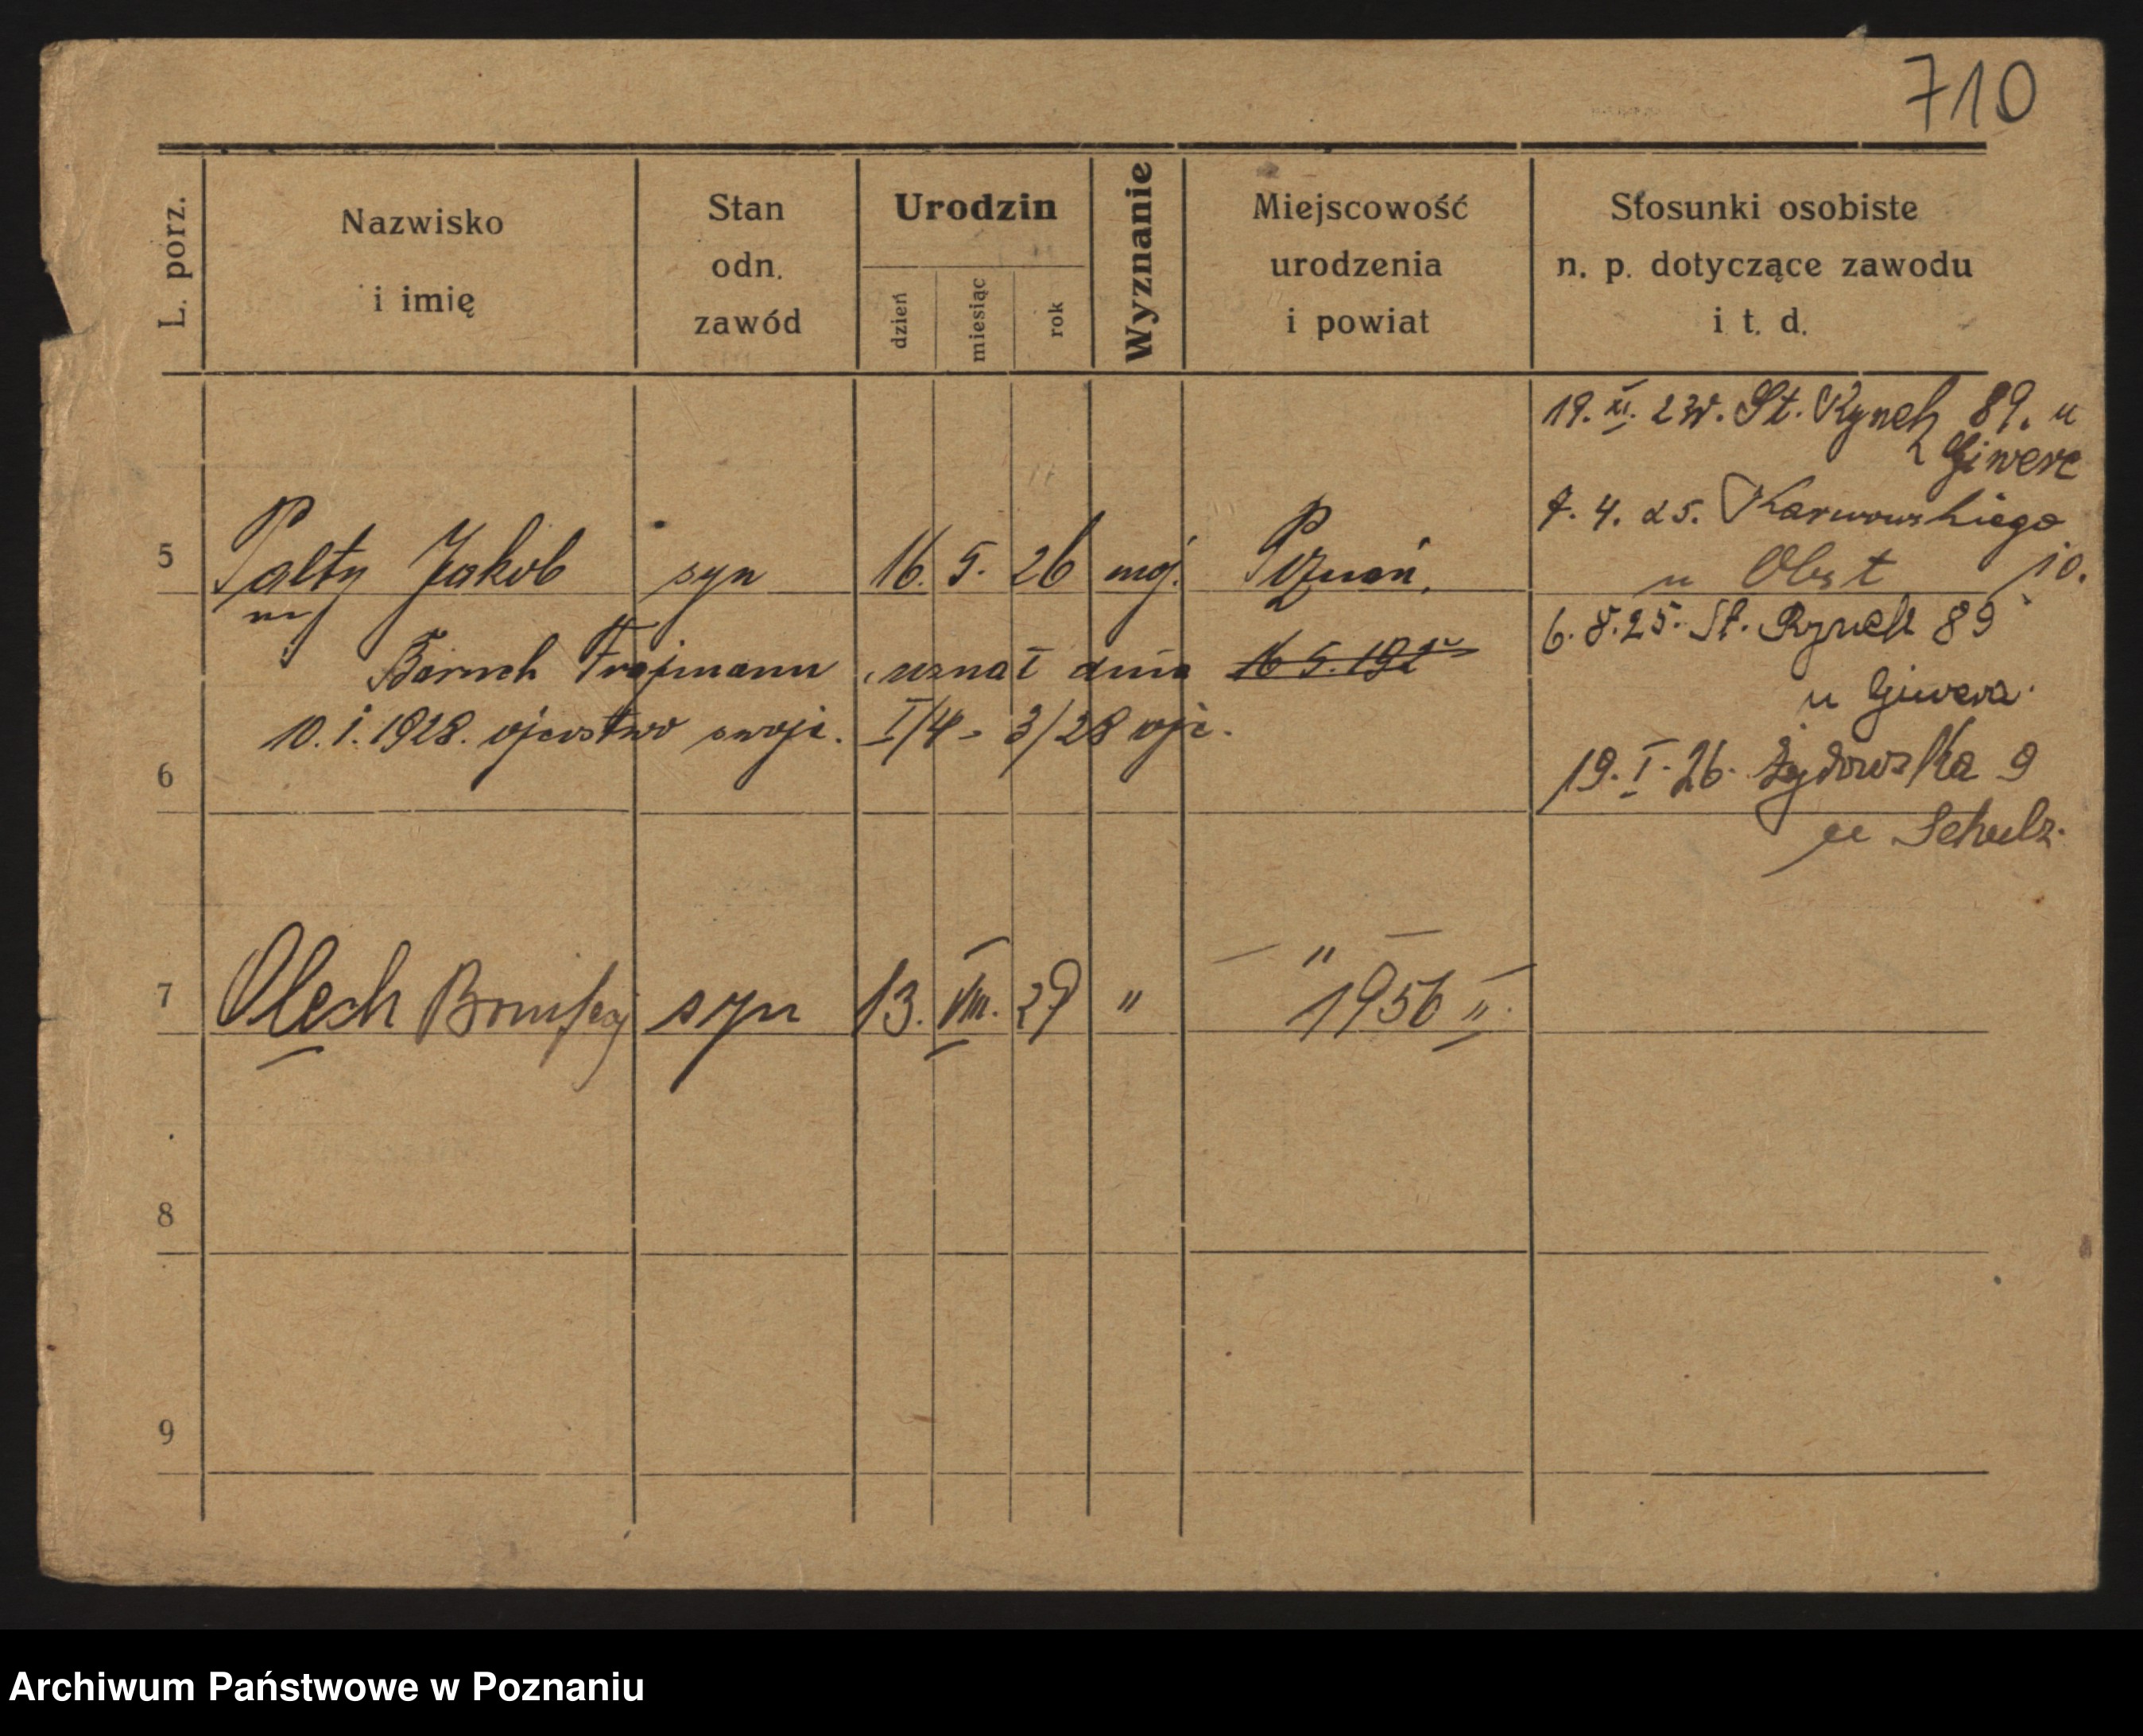 710
L. porz.
Nazwisko
i imię
Stan
odn.
zawód
Urodzin
dzień
miesiąc
rok
Wyznanie
Miejscowość
urodzenia
i powiat
Stosunki osobiste
n. p. dotyczące zawodu
i t. d.
19. XI. 24. St. Rynek 89. u
Giwerc
7. 4. 25. Karwowskiego
u Obst 10.
5 Palty Jakob syn 16. 5. 26 moj. Poznań.
6. 8. 25. St. Rynek 89
Baruch Frajmann, uznał dnia 16 5. 192
u Giwera.
10. I. 1928. ojcostwo swoje. I/4 - 3/28 oje.
19. I. 26. Żydowska 9
6
u Schulz.
7 Olech Bonifacy syn 13. VIII. 27 " — " —
1956 II.
8
9
Archiwum Państwowe w Poznaniu